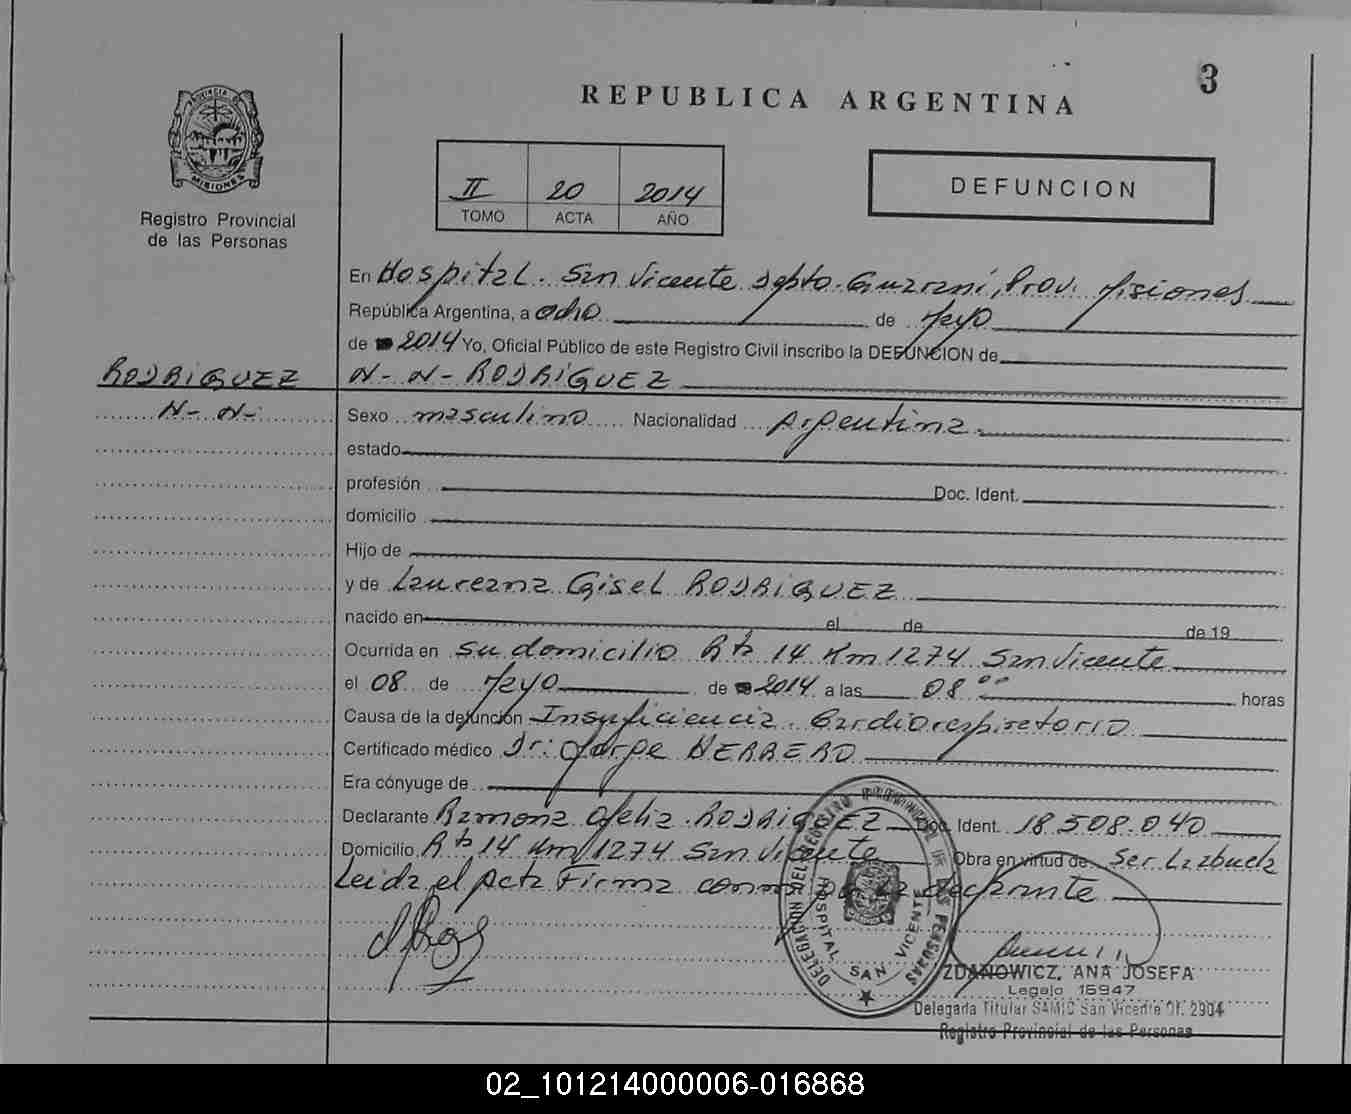 3
REPUBLICA ARGENTINA
PROVINCIA DE
MISIONES
Registro Provincial
de las Personas
II 20 2014
TOMO ACTA AÑO
DEFUNCION
En Hospital. San Vicente Depto. Guaraní, Prov. Misiones
República Argentina, a ocho de Mayo
de 2014 Yo, Oficial Público de este Registro Civil inscribo la DEFUNCION de
RODRIGUEZ N- N- RODRIGUEZ
N- N- Sexo masculino Nacionalidad Argentina
estado
profesión Doc. Ident.
domicilio
Hijo de
y de Laureana Gisel RODRIGUEZ
nacido en el de de 19
Ocurrida en su domicilio Rta 14 Km 1274 San Vicente
el 08 de Mayo de 2014 a las 08 00 horas
Causa de la defunción Insuficiencia Cardiorespiratorio
Certificado médico Dr: Jorge HERRERO
Era cónyuge de
Declarante Ramona Ofelia RODRIGUEZ Doc. Ident. 18.508.040
Domicilio Rta 14 Km 1274 San Vicente Obra en virtud de Ser La abuela
Leida el Acta Firma conmigo la declarante
DELEGACION DEL REGISTRO PROVINCIAL DE LAS PERSONAS
HOSPITAL SAN VICENTE
ZDANOWICZ, ANA JOSEFA
Legajo 15947
Delegada Titular SAMIC San Vicente Of. 2904
Registro Provincial de las Personas
02_101214000006-016868